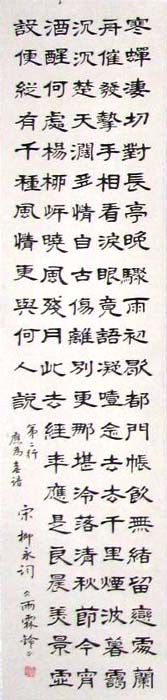 寒蟬淒切對長亭晚驟雨初歇都門帳飲無緒留戀處蘭
舟催發執手相看淚眼竟語凝噎念去去千里煙波暮靄
沉沉楚天濶多情自古傷離別更那堪冷落清秋節今宵
酒醒何處楊柳岸曉風殘月此去經年應是良晨美景虛
設便縱有千種風情更與何人說
第二行
應為
宋柳永詞雨霖鈴